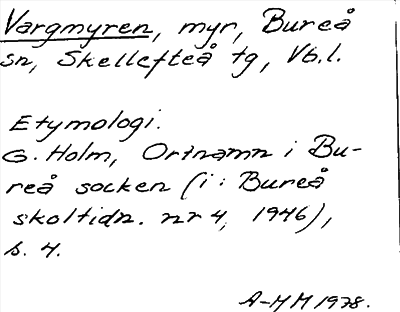 Vargmyren, myr, Bureå
sn, Skellefteå tg, Vb.l.
Etymologi.
G. Holm, Ortnamn i Bu-
reå socken (i: Bureå
skoltidn. nr 4, 1946),
s. 4.
A-MM 1978.